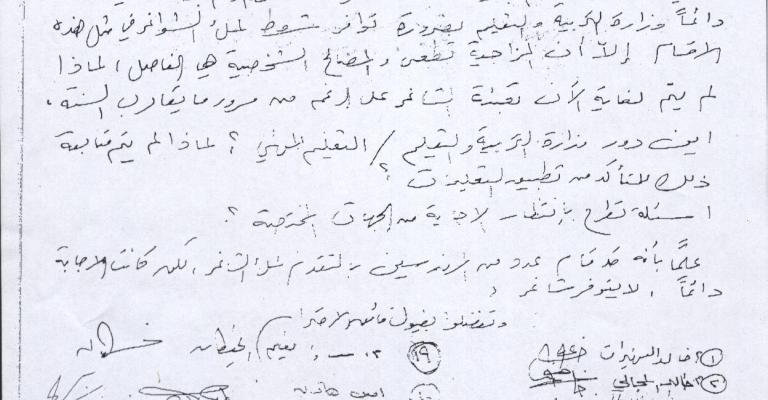 دائماً وزارة التربية والتعليم بضرورة توافر شروط لملئ الشواغر في مثل هذه
الاقسام إلاّ أن المزاجية تطغى والمصالح الشخصية هي الفاصل، لماذا
لم يتم لغاية الأن تعبئة الشاغر على الرغم من مرور ما يقارب السنة،
اين دور وزارة التربية والتعليم / التعليم المهني ؟ لماذا لم يتم متابعة
ذلك للتأكد من تطبيق التعليمات ؟
اسئلة تطرح بإنتظار الاجابة من الجهات المختصة ؟
علماً بأنه قد قام عدد من المدرسين بالتقدم لملئ الشاغر، لكن كانت الاجابة
دائماً، لا يتوفر شاغر،
وتفضلوا بقبول فائق الاحترام
١) خالد ١٩)
٢) خالد المجالي